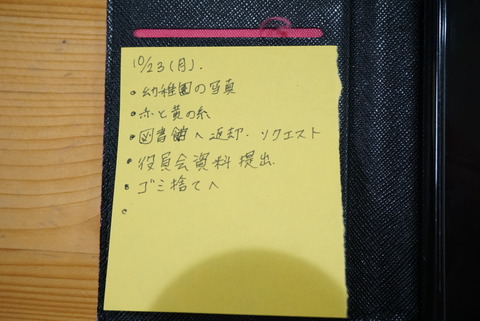 10/23(月).
・幼稚園の写真
・赤と黄の糸
・図書館へ返却・リクエスト
・役員会資料提出
・ゴミ捨てへ
・